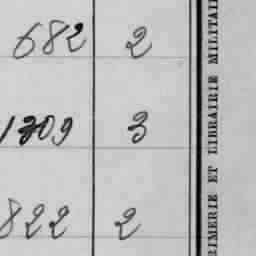 682 2
1309 3
822 2
RIMERIE ET LIBRAIRIE MILITAI